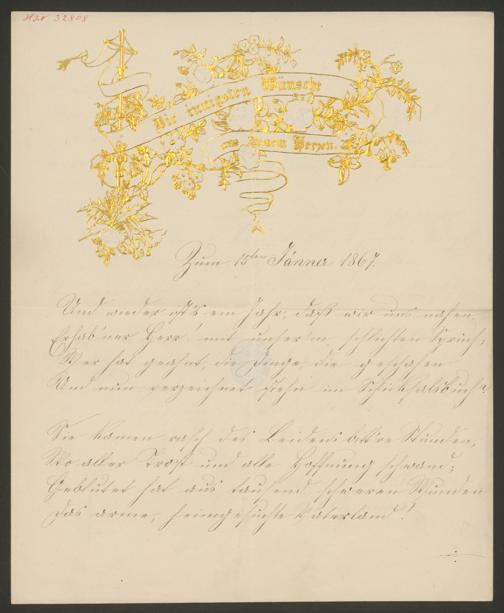 HIN 32808
Die innigsten Wünsche
aus treuem Herzen.
Zum 15ten Jänner 1867.
Und wieder ist's ein Jahr, daß wir uns nahen,
Erhab'ner Herr! mit unserm schlichten Spruch;
Wer hat geahnt, die Dinge, die geschahen
Und nun verzeichnet steh'n im Schicksalsbuch?
Sie kamen rasch des Leidens bitt're Stunden,
Wo aller Trost und alle Hoffnung schwand;
Geblutet hat aus tausend schweren Wunden
Das arme, heimgesuchte Vaterland!